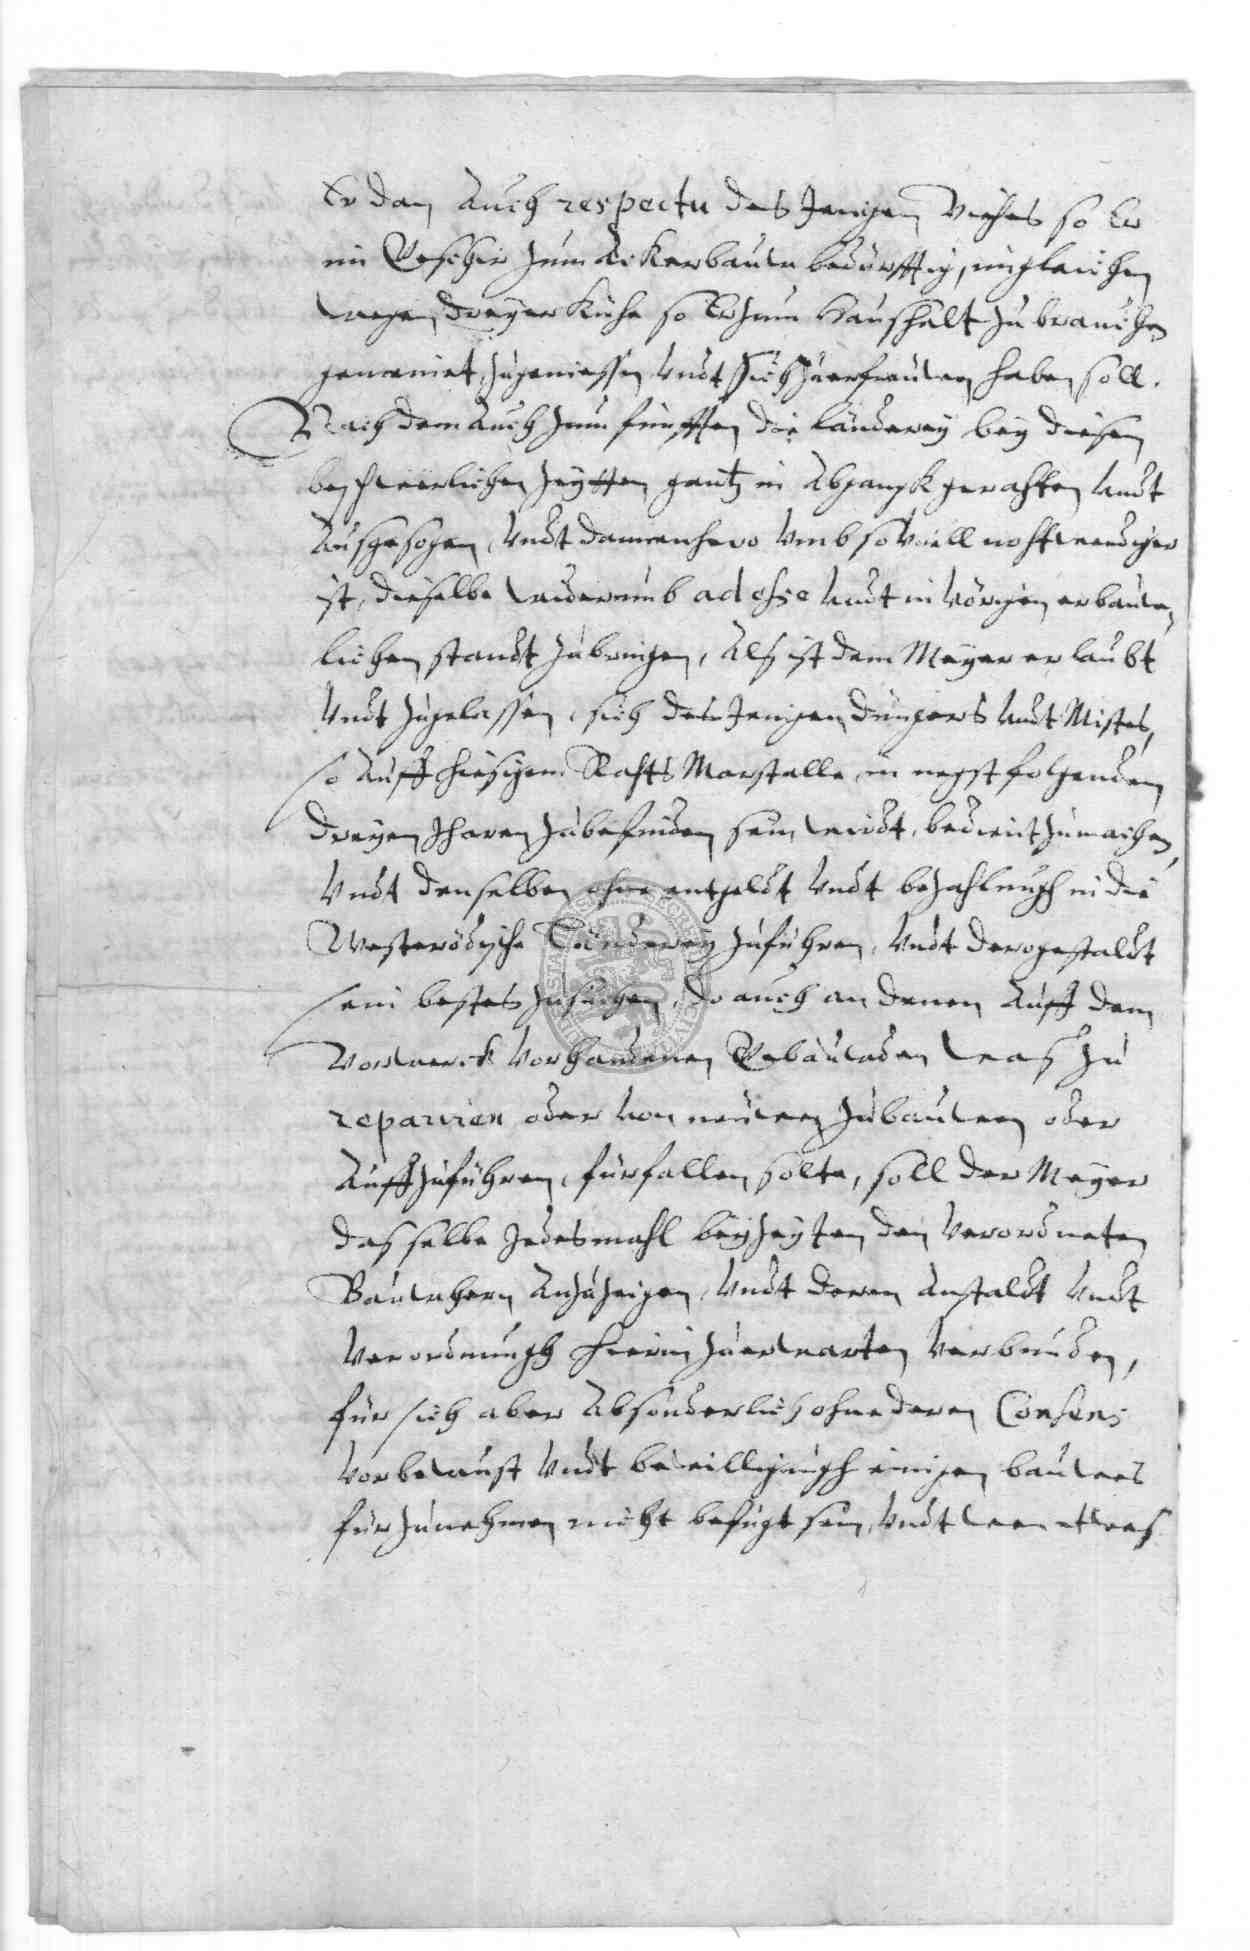 Er dan Auch respectu des Jenigen Viehes so Er
im Geschir zum Ackerbauw bedürfftig, ingleichen
wegen dreyer Kühe so Er zum Haushalt zu brauchen
gemeinet, zugeniessen Undt sich zuerfreuwen haben soll.
Nach dem Auch zum fünfften die länderey bey diesen
beschwerlichen Zeytten gantz in Abgangk gerahten Undt
Ausgesogen, Undt dannenhero Umb so Viell nohtwendiger
ist, dieselbe wiederumb ad esse Undt in Vorigen erbauw-
lichen standt zubringen, Alß ist dem Meyer erlaubt
Undt zugelassen, sich des Jenigen düngers Undt Mistes,
so Auff hiesigem Rahts Marstalle in negst folgenden
dreyen Jharen zubefinden sein wirdt, bedient zumachen,
Undt denselben ohne entgeldt Undt bezahlungh in die
Westerödische Länderey zuführen, Undt dergestaldt
sein bestes zusuchen, do auch an denen Auff dem
Vorwerck Vorhandenen Gebäuwden waß zu
reparieren oder Von neuwen zubauwen oder
Auffzuführen, fürfallen solte, soll der Meyer
dasselbe Jedesmahl beyzeyten den Verordneten
Bauwhern Anzuzeigen, Undt deren Anstaldt Undt
Verordnungh hierin zuerwarten Verbunden,
für sich aber Absonderlich ohne deren Consens
Vorbewust Undt bewilligungh einigen bauwes
fürzunehmen nicht befugt sein, Undt wen etwaß